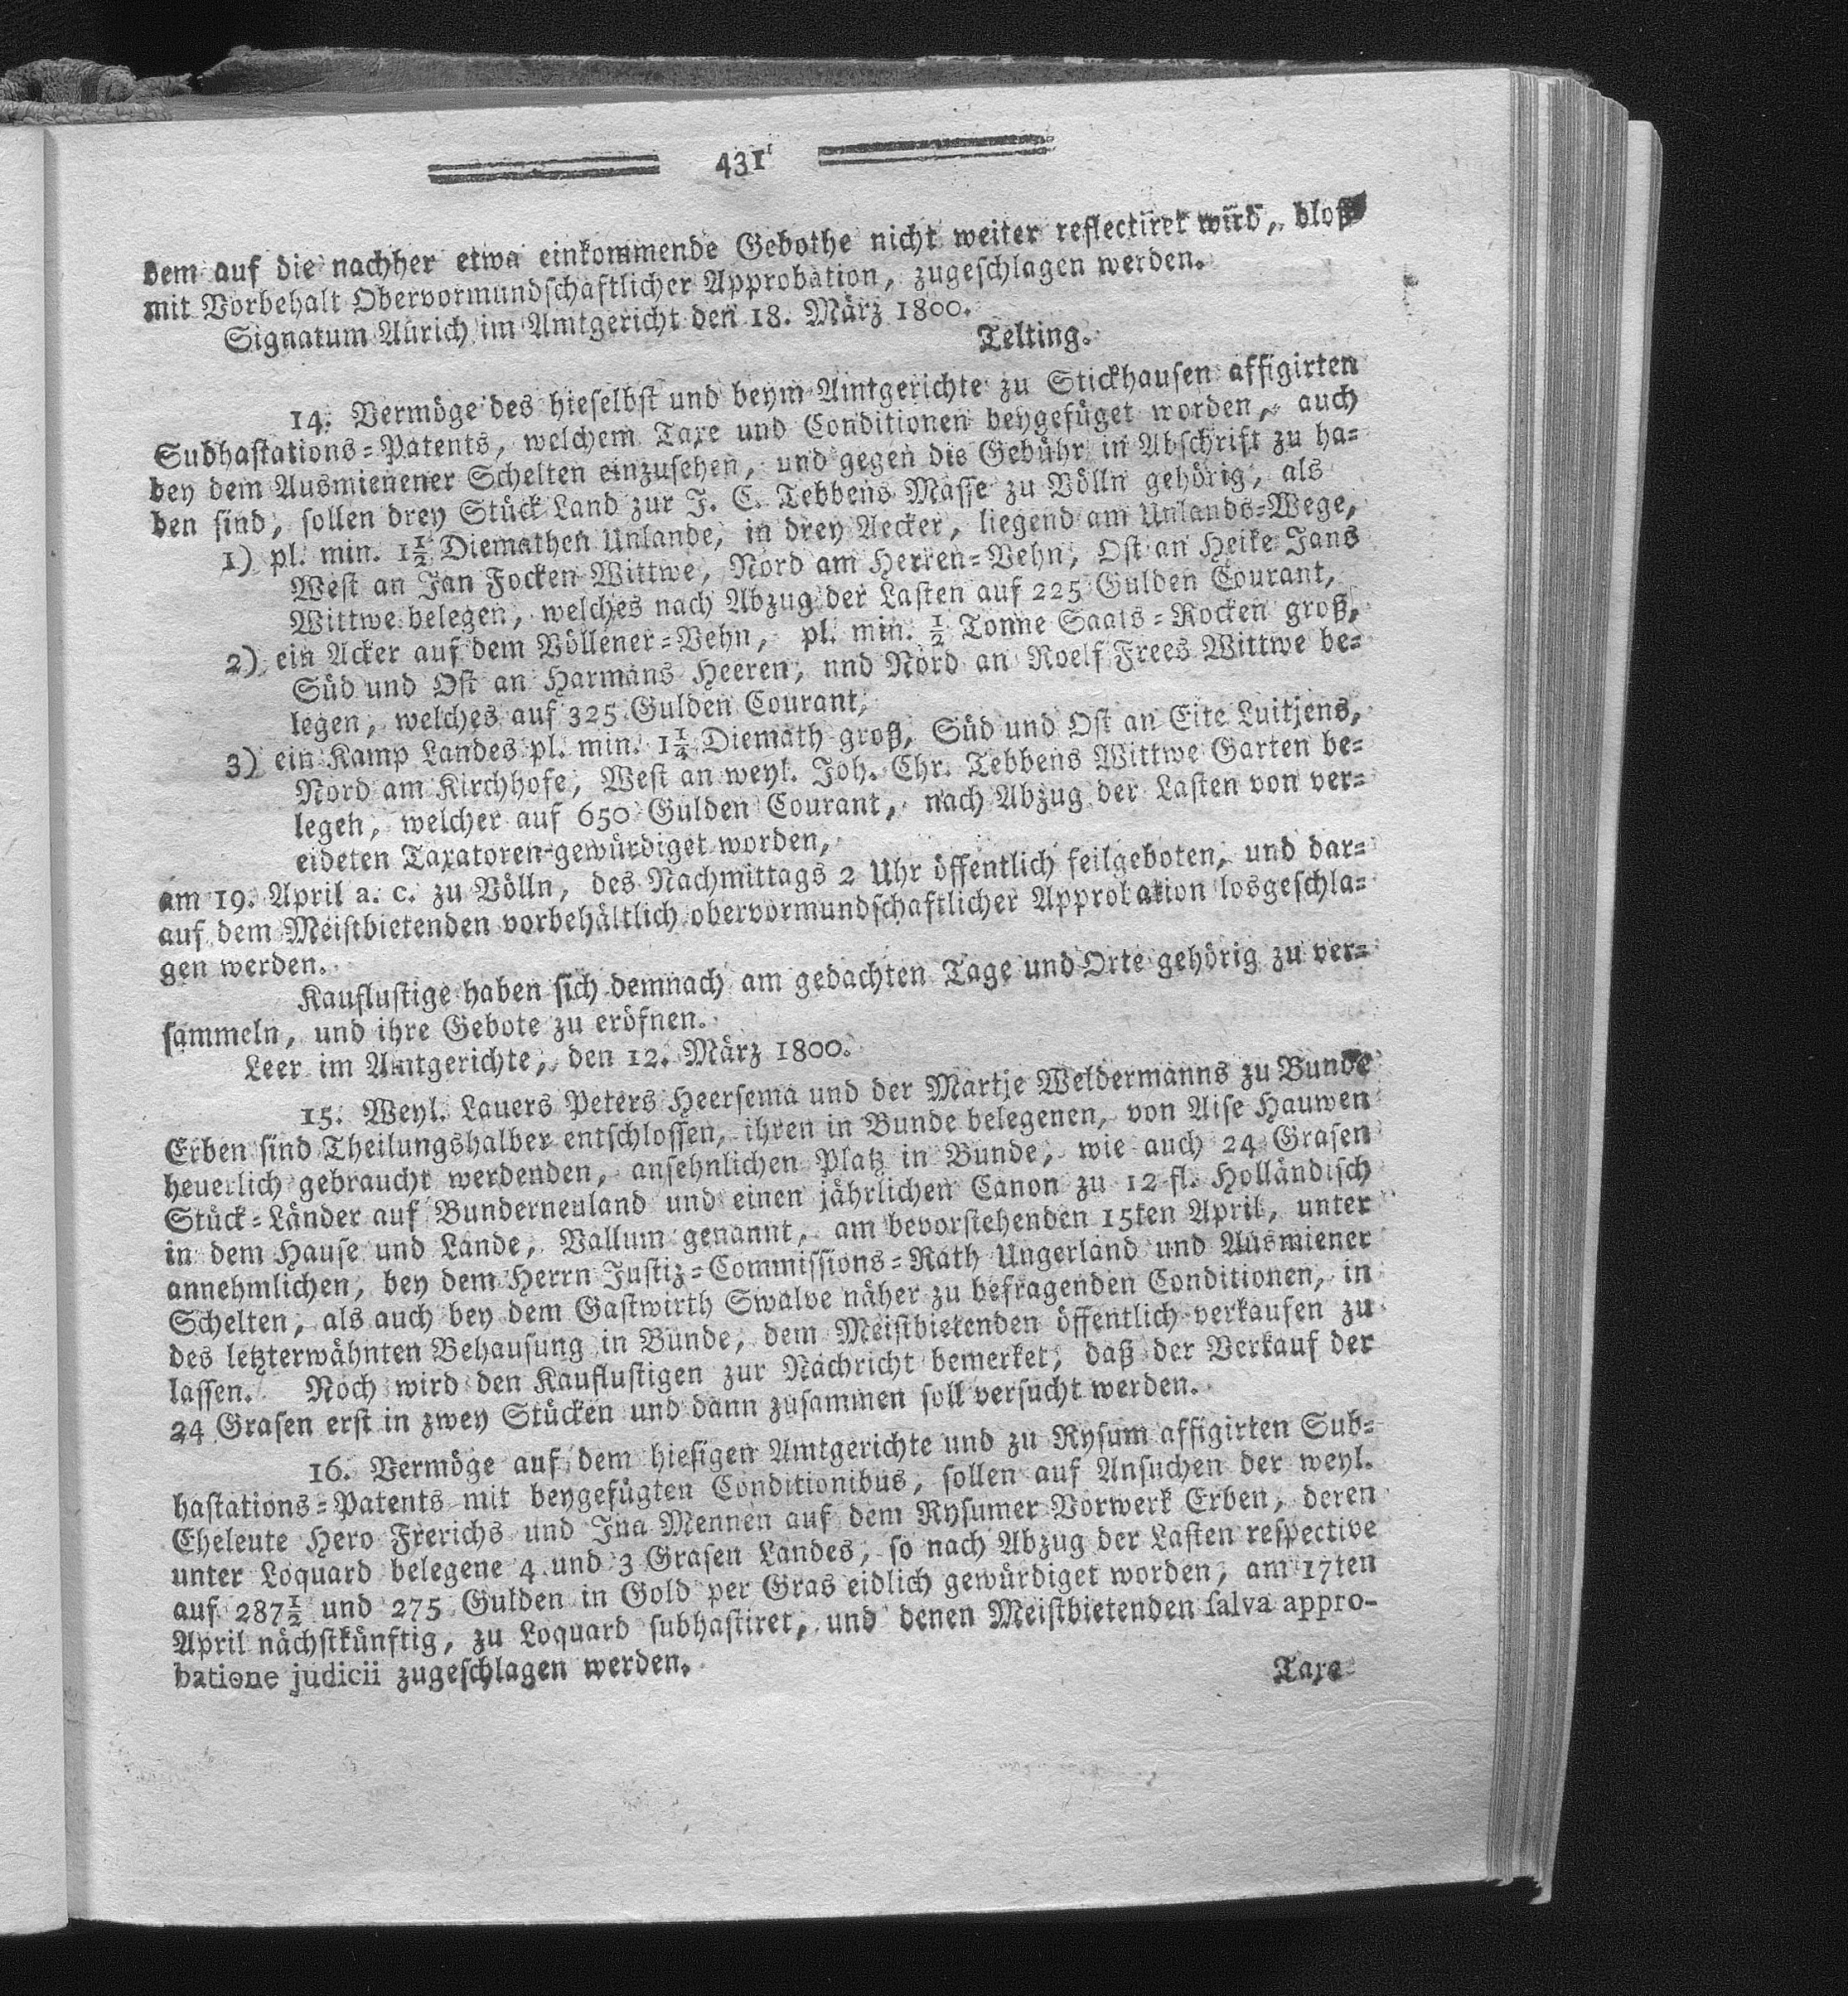 431
dem auf die nachher etwa einkommende Gebothe nicht weiter reflectiret wird, bloß
mit Vorbehalt Obervormundschaftlicher Approbation, zugeschlagen werden.
Signatum Aurich im Amtgericht den 18. März 1800.
Telting.
14. Vermöge des hieselbst und beym Amtgerichte zu Stickhausen affigirten
Subhastations-Patents, welchem Taxe und Conditionen beygefüget worden, auch
bey dem Ausmienener Schelten einzusehen, und gegen die Gebühr in Abschrift zu ha-
ben sind, sollen drey Stück Land zur J. C. Tebbens Masse zu Völln gehörig, als
1) pl. min. 1½ Diemathen Unlande, in drey Aecker, liegend am Unlands-Wege,
West an Jan Focken Wittwe, Nord am Herren-Vehn, Ost an Heike Jans
Wittwe belegen, welches nach Abzug der Lasten auf 225 Gulden Courant,
2) ein Acker auf dem Völlener-Vehn, pl. min. ½ Tonne Saats-Rocken groß,
Süd und Ost an Harmans Heeren, nnd Nord an Roelf Frees Wittwe be-
legen, welches auf 325 Gulden Courant,
3) ein Kamp Landes pl. min. 1½ Diemath groß, Süd und Ost an Eite Luitjens,
Nord am Kirchhofe, West an weyl. Joh. Chr. Tebbens Wittwe Garten be-
legen, welcher auf 650 Gulden Courant, nach Abzug der Lasten von ver-
eideten Taxatoren gewürdiget worden,
am 19. April a. c. zu Völln, des Nachmittags 2 Uhr öffentlich feilgeboten, und dar-
auf dem Meistbietenden vorbehältlich obervormundschaftlicher Approbation losgeschla-
gen werden.
Kauflustige haben sich demnach am gedachten Tage und Orte gehörig zu ver-
sammeln, und ihre Gebote zu eröfnen.
Leer im Amtgerichte, den 12. März 1800.
15. Weyl. Lauers Peters Heersema und der Martje Weldermanns zu Bunde
Erben sind Theilungshalber entschlossen, ihren in Bunde belegenen, von Aise Hauwen
heuerlich gebraucht werdenden, ansehnlichen Platz in Bunde, wie auch 24 Grasen
Stück-Länder auf Bunderneuland und einen jährlichen Canon zu 12 fl. Holländisch
in dem Hause und Lande, Vallum genannt, am bevorstehenden 15ten April, unter
annehmlichen, bey dem Herrn Justiz-Commissions-Rath Ungerland und Ausmiener
Schelten, als auch bey dem Gastwirth Swalve näher zu befragenden Conditionen, in
des letzterwähnten Behausung in Bunde, dem Meistbietenden öffentlich verkaufen zu
lassen. Noch wird den Kauflustigen zur Nachricht bemerket, daß der Verkauf der
24 Grasen erst in zwey Stücken und dann zusammen soll versucht werden.
16. Vermöge auf dem hiesigen Amtgerichte und zu Rysum affigirten Sub-
hastations-Patents mit beygefügten Conditionibus, sollen auf Ansuchen der weyl.
Eheleute Hero Frerichs und Jna Mennen auf dem Rysumer Vorwerk Erben, deren
unter Loquard belegene 4 und 3 Grasen Landes, so nach Abzug der Lasten respective
auf 287½ und 275 Gulden in Gold per Gras eidlich gewürdiget worden, am 17ten
April nächstkünftig, zu Loquard subhastiret, und denen Meistbietenden salva appro-
batione judicii zugeschlagen werden.
Taxe